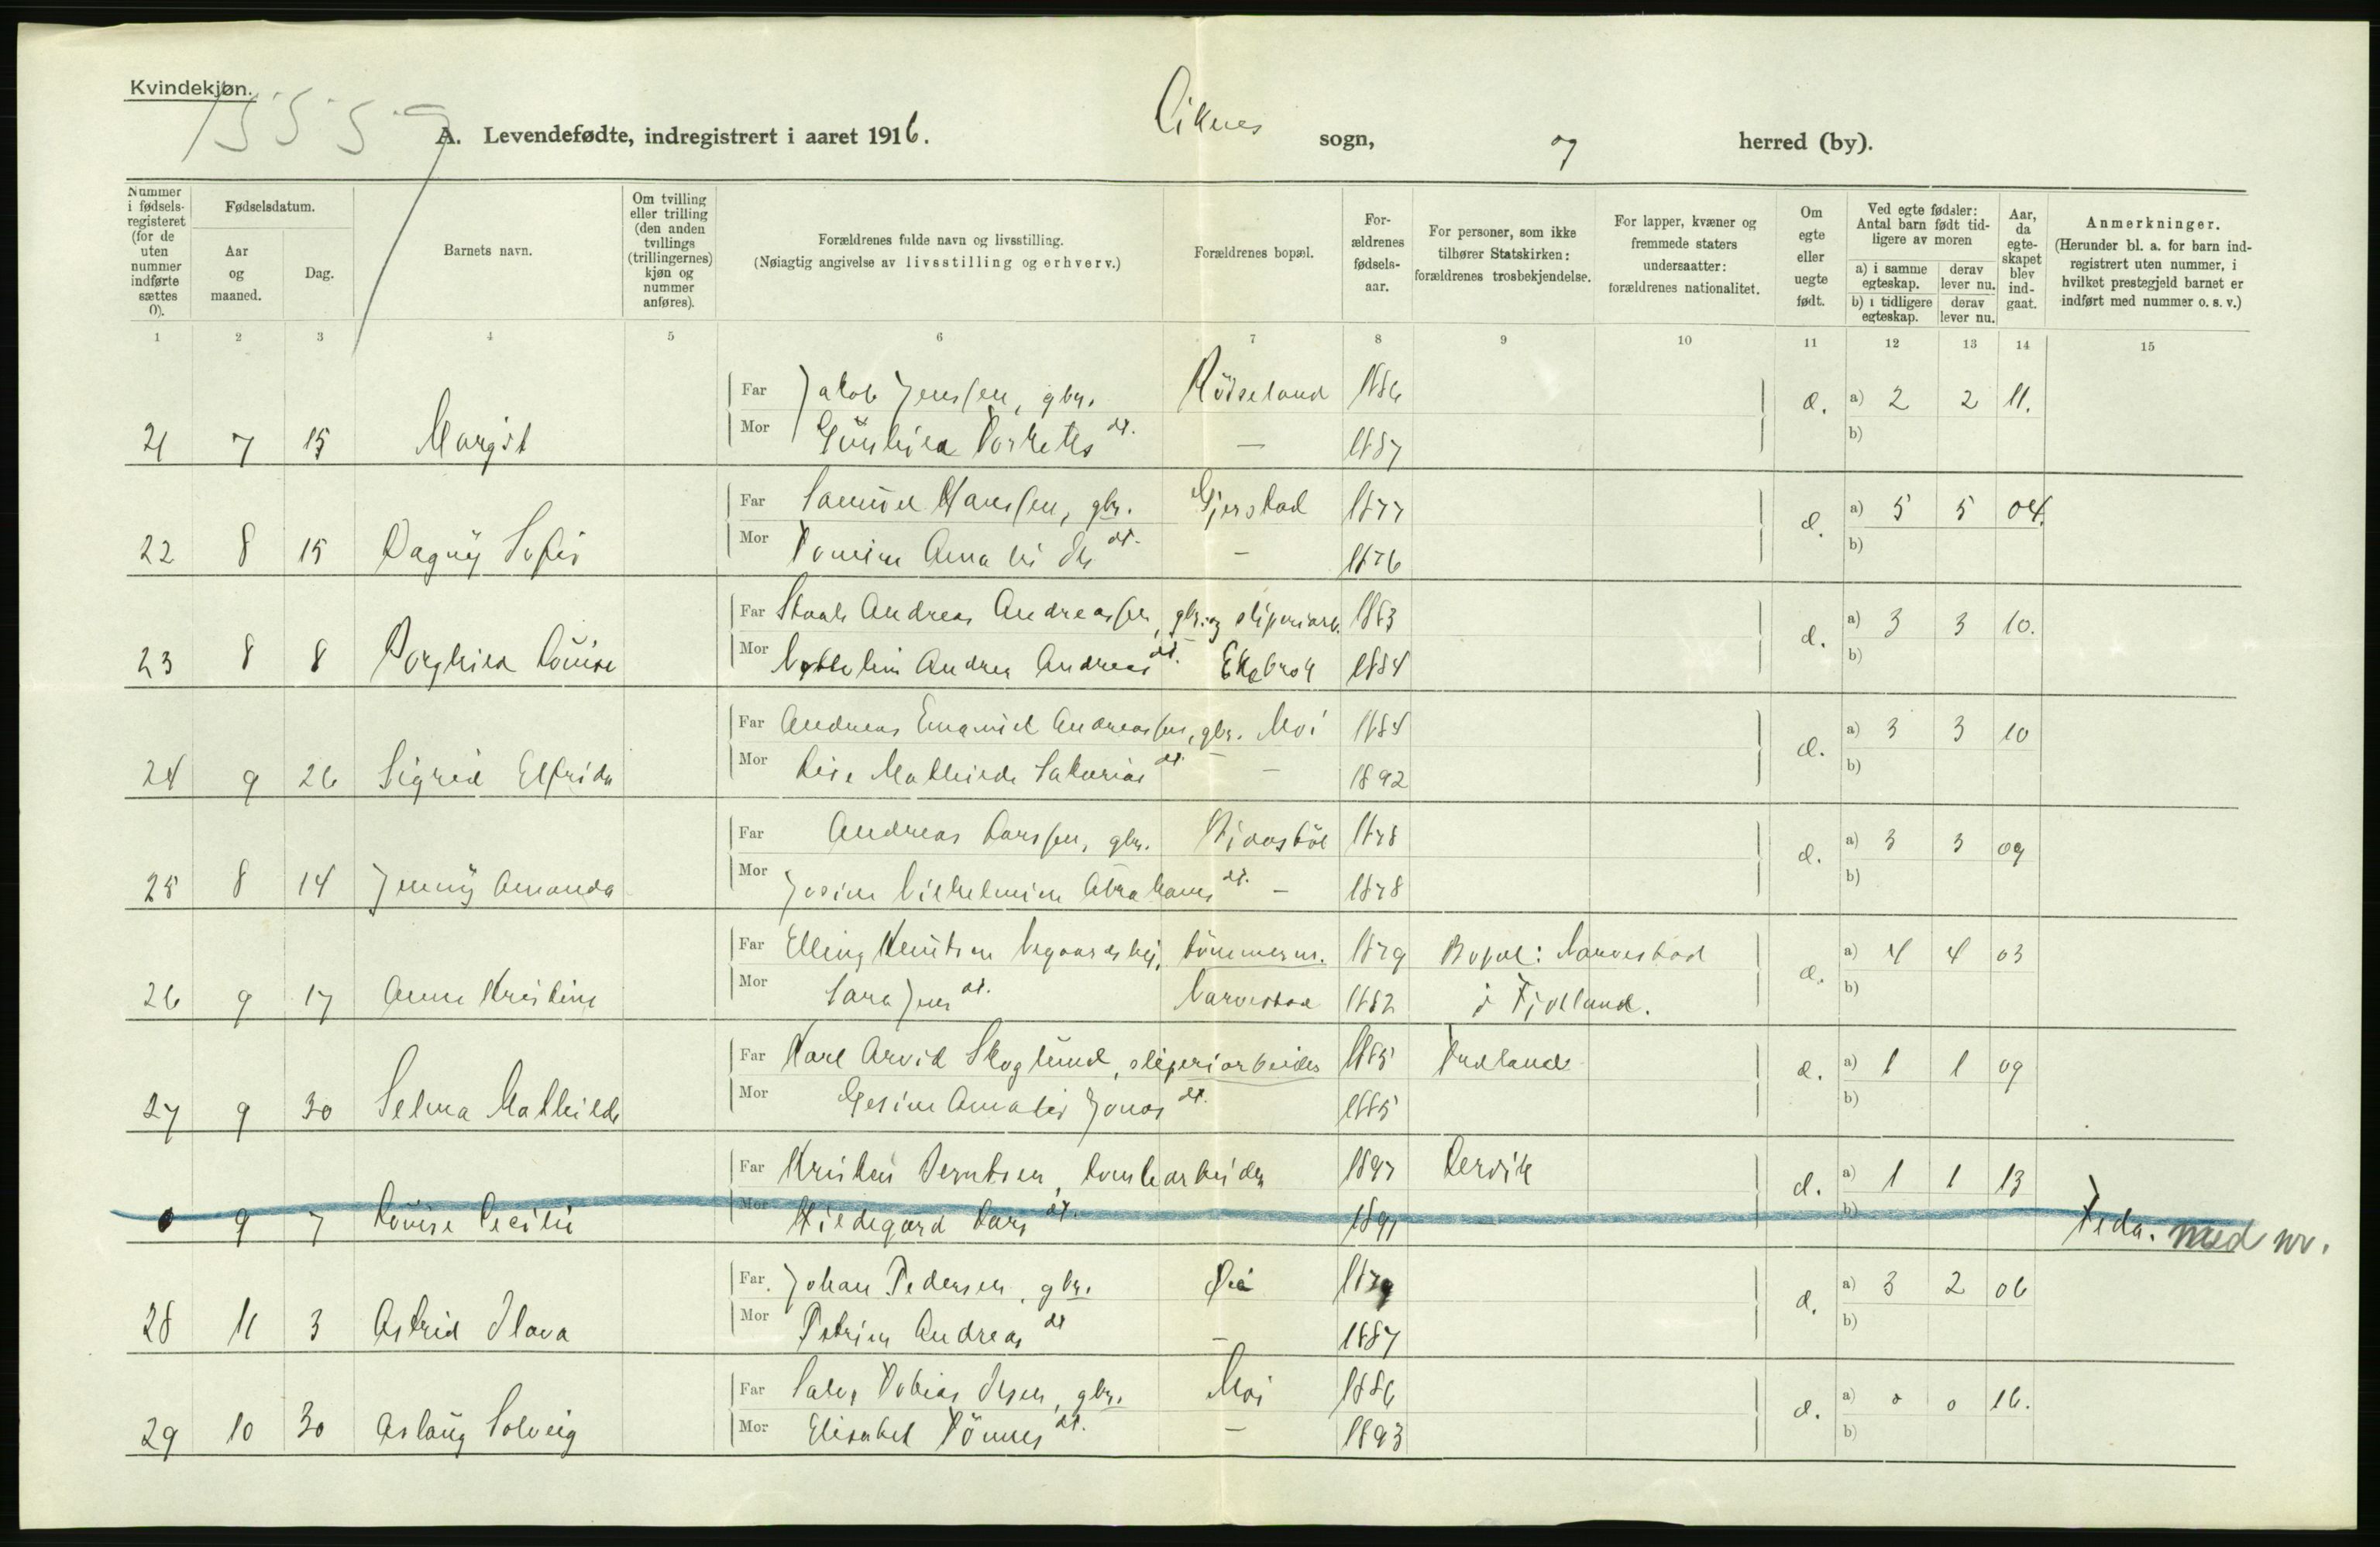 Kvindekjøn.
A. Levendefødte, indregistrert i aaret 1916. Liknes sogn, og herred (by).
Nummer i fødsels-registeret (for de uten nummer indførte sættes 0).
Fødselsdatum.
Aar og maaned.
Dag.
Barnets navn.
Om tvilling eller trilling (den anden tvillings (trillingernes) kjøn og nummer anføres).
Forældrenes fulde navn og livsstilling.
(Nøiagtig angivelse av livsstilling og erhverv.)
Forældrenes bopæl.
For-ældrenes fødsels-aar.
For personer, som ikke tilhører Statskirken: forældrenes trosbekjendelse.
For lapper, kvæner og fremmede staters undersaatter: forældrenes nationalitet.
Om egte eller uegte født.
Ved egte fødsler: Antal barn født tid-ligere av moren
a) i samme egteskap. derav lever nu.
b) i tidligere egteskap. derav lever nu.
Aar, da egte-skapet blev ind-gaat.
Anmerkninger.
(Herunder bl. a. for barn ind-registrert uten nummer, i hvilket prestegjeld barnet er indført med nummer o. s. v.)
1 2 3 4 5 6 7 8 9 10 11 12 13 14 15
Far Jakob Jenssen, gbr. 1886 a) 2 2 11.
Mor Gunhild dt. — 1887 b)
21 7 15 Margit
Far Samuel Hanssen, gbr. Gjerstad 1877 a) 5 5 04.
Mor dt. — 1876 b)
22 8 15 Dagny Sofie
Far Andreas Andreassen, gbr. og sliperiarb. 1883 a) 3 3 10.
Mor Andrea Andreas dt. 1884 b)
23 8 8 Borghild Louise
Far Andreas Emanuel Andreassen, gbr. Moi 1884 a) 3 3 10
Mor Lise Mathilde dt. — 1892 b)
24 9 26 Sigrid Elfrida
Far Andreas Larssen, gbr. 1878 a) 3 3 09
Mor Josine Vilhelmine Abrahams dt. — 1878 b)
25 8 14 Jenny Amanda
Far Elling Knutsen tömmerm. 1879 Bopæl: Narvestad a) 4 4 03
Mor Sara Jens dt. Narvestad 1882 i Fjotland. b)
26 9 17 Anne Kristine
Far Karl Arvid Skoglund, sliperiarbeider 1885 a) 1 1 09
Mor Gesine Amalie Jonas dt. 1885 b)
27 9 30 Selma Mathilde
Far Berntsen, tomtearbeider 1897 Lervik a) 1 1 13
Mor Hildegard Lars dt. 1891 b)
0 9 7 Louise Cecilie Feda. med nr.
Far Johan Pedersen, gbr. 1879 a) 3 2 06
Mor Petrine Andreas dt — 1887 b)
28 11 3 Astrid
Far Tobias gbr. Moi 1886 a) 0 0 16.
Mor Elisabet Tönnes dt. — 1893 b)
29 10 30 Aslaug Solveig